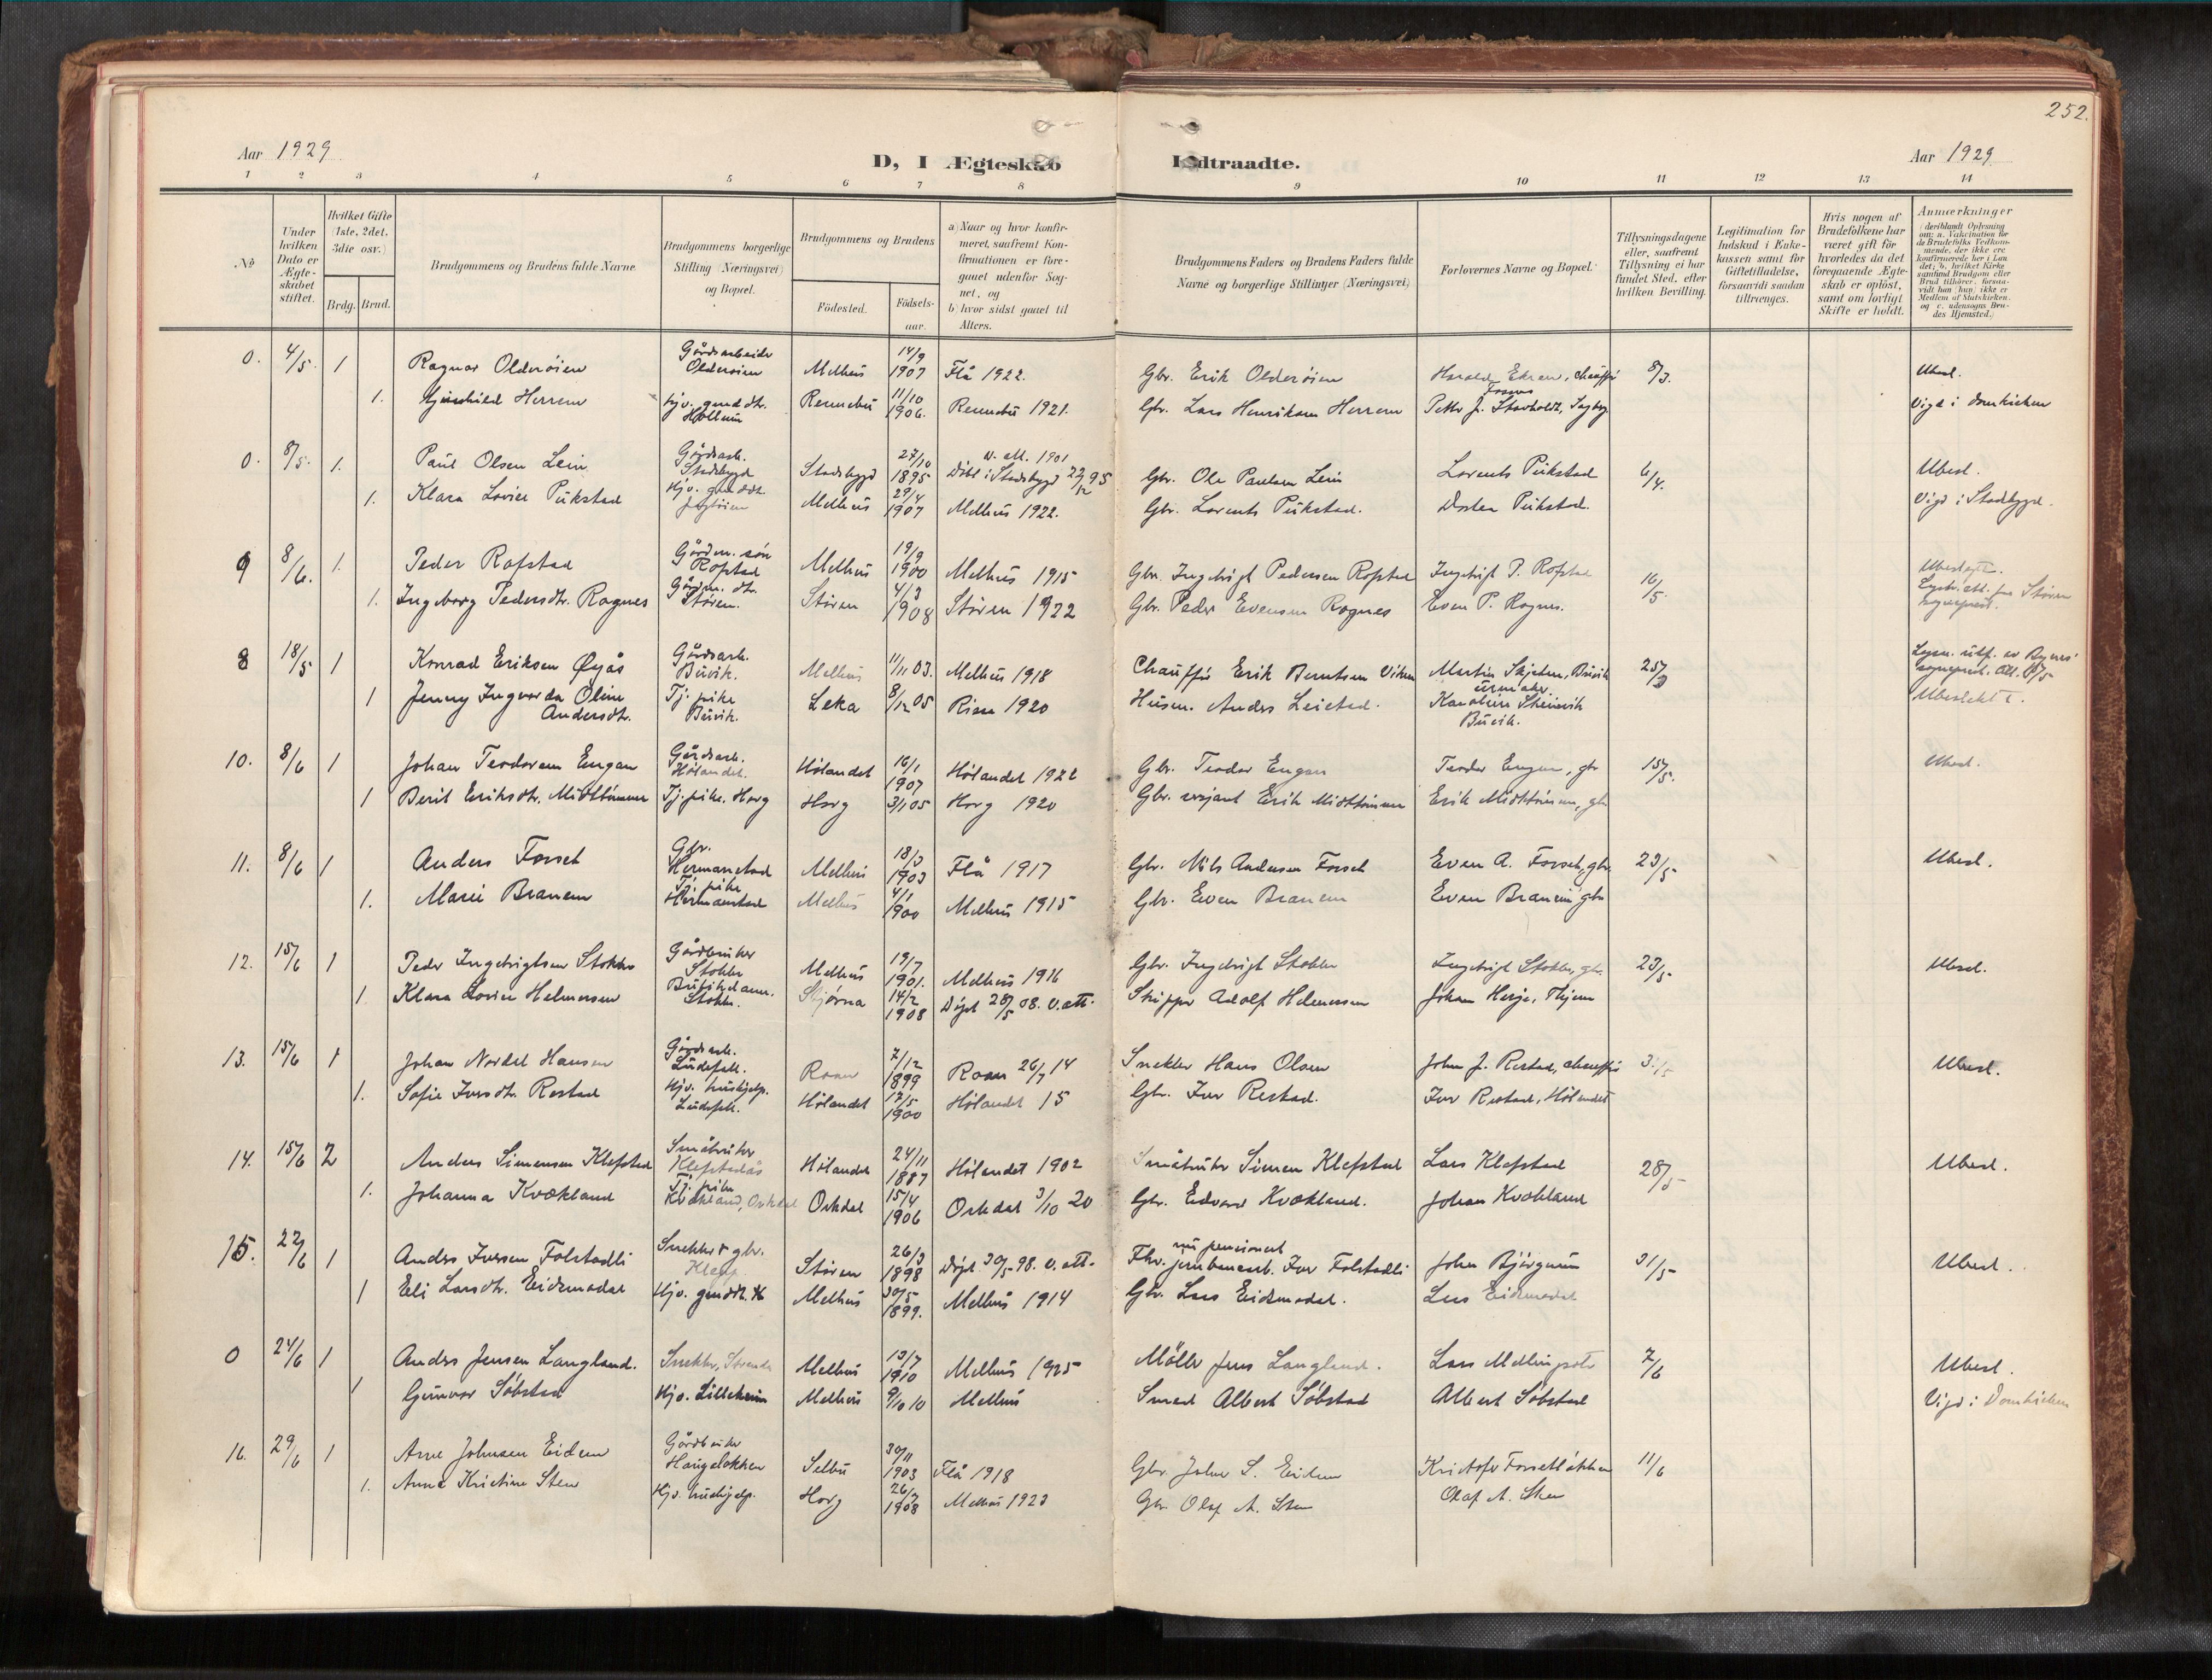 252.
Aar 1929
D, I Ægteskab
Indtraadte.
Aar 1929
1 2 3 4 5 6 7 8 9 10 11 12 13 14
№
Under hvilken Dato er Ægteskabet stiftet.
Hvilket Gifte (1ste, 2det, 3die osv.)
Brdg. Brud.
Brudgommens og Brudens fulde Navne.
Brudgommens borgerlige Stilling (Næringsvei) og Bopæl.
Brudgommens og Brudens
Födested.
Födselsaar.
a) Naar og hvor konfirmeret, saafremt Konfirmationen er foregaaet udenfor Sognet, og
b) hvor sidst gaaet til Alters.
Brudgommens Faders og Brudens Faders fulde Navne og borgerlige Stillinger (Næringsvei)
Forlovernes Navne og Bopæl.
Tillysningsdagene eller, saafremt Tillysning ei har fundet Sted, efter hvilken Bevilling.
Legitimation for Indskud i Enkekassen samt for Giftetilladelse, forsaavidt saadan tiltrænges.
Hvis nogen af Brudefolkene har været gift för hvorledes da det foregaaende Ægteskab er oplöst, samt om lovligt Skifte er holdt.
Anmærkninger (deriblandt Oplysning om: a. Vakcination for de Brudefolks Vedkommende, der ikke ere konfirmerede her i Landet; b. hvilket Kirkesamfund Brudgom eller Brud tilhörer, forsaavidt han (hun) ikke er Medlem af Statskirken, og c. udensogns Brudes Hjemsted.)
0. 4/5 1 Ragnar Olderöien Gårdsarbeider Olderöien Melhus 14/9 1907 Flå 1922. Gbr. Erik Olderöien 8/3. Ubesl.
1. Herrem Hjv. gmd.dtr. Rennebu 11/10 1906. Rennebu 1921. Gbr. Lars Henriksen Herrem Vigd i Domkirken
0. 8/5. 1. Paul Olsen Lein Gårdsarb. Stadsbygd Stadsbygd 27/10 1895 Döbt i Stadsbygd Gbr. Ole Paulsen Lein Lorents Pukstad 6/4. Ubesl.
1. Klara Lovise Pukstad Hjv. gmd.dtr. Melhus 29/4 1907 Melhus 1922. Gbr. Lorents Pukstad. Pukstad. Vigd i Stadsbygd.
9 8/6. 1. Peder Rofstad Gårdm. sön Rofstad Melhus 19/9 1900 Melhus 1915 Gbr. Ingebrigt Pedersen Rofstad Ingebrigt P. Rofstad 16/5.
1. Ingeborg Pedersdtr. Rognes Gårdm. dtr. Stören. Stören 4/3 1908 Stören 1922 Gbr. Peder Evensen Rognes Even P. Rognes.
8 18/5 1 Konrad Eriksen Øyås Gårdsarb. Buvik. Melhus 11/11 03. Melhus 1918 Chauffør Erik Berntsen Martin Skjetne, Buvik
1 Jenny Ingvarda Oline Andersdtr. Tj. pike Buvik. Leka 8/12 05 1920 Husm. Anders Leistad. Buvik.
10. 8/6 1 Johan Teodorsen Engan Gårdsarb. Hölandet. Hölandet 16/1 1907 Hölandet 1922 Gbr. Teodor Engan Teodor Engan, gbr 15/5. Ubesl.
1 Berit Eriksdtr. Tj. pike, Horg Horg 3/1 05 Horg 1920 Gbr. sersjant Erik
11. 8/6 1 Anders Forset Gbr. Hermanstad Melhus 18/3 1903 Flå 1917 Gbr. Nils Andersen Forset Even A. Forset, gbr. 23/5 Ubesl.
1. Marie Tj. pike Hermanstad Melhus 4/1 1900 Melhus 1915 Gbr. Even
12. 15/6 1 Peder Ingebrigtsen Gårdbruker Melhus 19/7 1901. Melhus 1916 Gbr. Ingebrigt 23/5 Ubesl.
1. Klara Lovise Helmersen Butikdame. 14/2 1908 Döpt 28/5 08. v. att. Skipper Adolf Helmersen Johan
13. 15/6 1 Johan Nordal Hansen Gårdsarb. Roan 7/12 1899 Roan 26/7 14 Snekker Hans Olsen John J. Restad, chauffør Ubesl.
1. Sofie Iversdtr. Restad Hjv. hushjelp. Hölandet 17/5 1900 Hölandet 15 Gbr. Iver Restad. Iver Restad, Hölandet
14. 15/6 2 Anders Simonsen Klefstad Småbruker Klefstadås Hölandet 24/11 1887 Hölandet 1902 Småbruker Simon Klefstad Lars Klefstad 28/5 Ubesl.
1. Johanna Kvækland Tj. pike Kvækland, Orkdal Orkdal 15/4 1906 Orkdal 3/10 20 Gbr. Edvard Kvækland. Johan Kvækland
15. 22/6 1 Anders Iversen Folstadli Snekker & gbr. Stören 26/3 1898 Döpt 30/5 98. v. att. Fhv. nu pensionert jernbanearb. Iver Folstadli John Björgum 31/5 Ubesl.
1 Eli Larsdtr. Eidsmodal Hjv. gmd.dtr. Melhus 30/5 1899. Melhus 1914 Gbr. Lars Eidsmodal. Lars Eidsmodal
0 24/6 1 Anders Jensen Langland. Snekker, Melhus 13/7 1910 Melhus 1925 Möller Jens Langland. Lars 7/6 Ubesl.
1 Gunvor Söbstad Hjv. Lilleheim Melhus 9/10 10 Melhus Smed Albert Söbstad Albert Söbstad Vigd i Domkirken
16. 29/6 1 Arne Johnsen Eidem Gårdbruker Haugelökken Selbu 30/11 1903 Flå 1918 Gbr. John S. Eidem Kristofer Forsetlökken 11/6
1. Anna Kristine Sten Hjv. hushjelp. Horg 26/7 1908 Melhus 1923 Gbr. Olaf A. Sten Olaf A. Sten